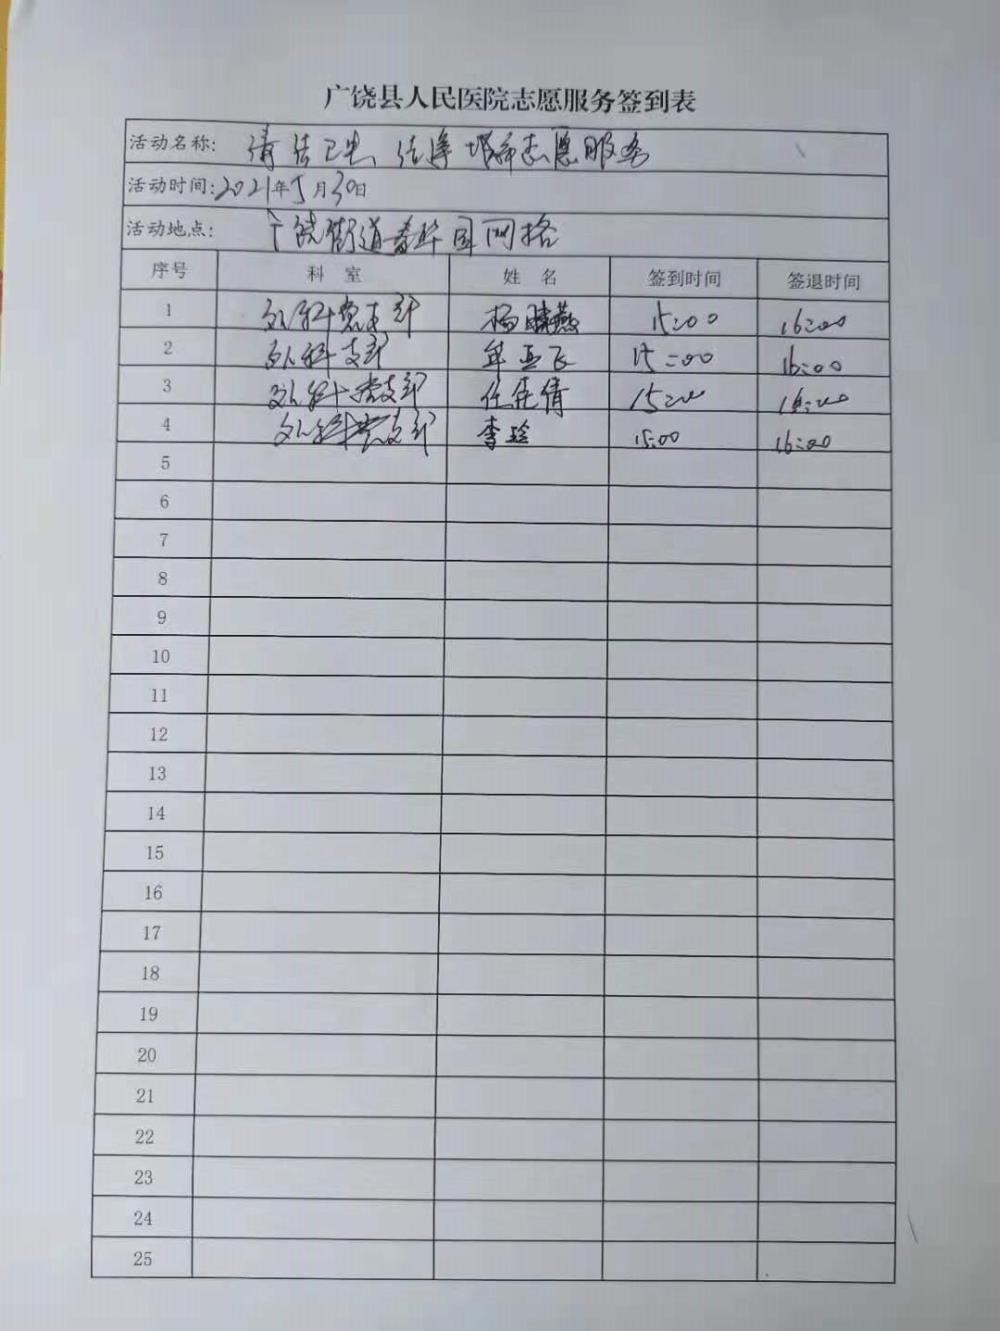 广饶县人民医院志愿服务签到表
活动名称: 清洁卫生 洁净城市志愿服务
活动时间: 2021年5月30日
活动地点: 广饶街道春华园网格
序号 科室 姓名 签到时间 签退时间
1 外科党支部 杨晓燕 15:00 16:00
2 外科支部 牟亚飞 15:00 16:00
3 外科党支部 任 倩 15:00 16:00
4 外科党支部 李玲 15:00 16:00
5
6
7
8
9
10
11
12
13
14
15
16
17
18
19
20
21
22
23
24
25